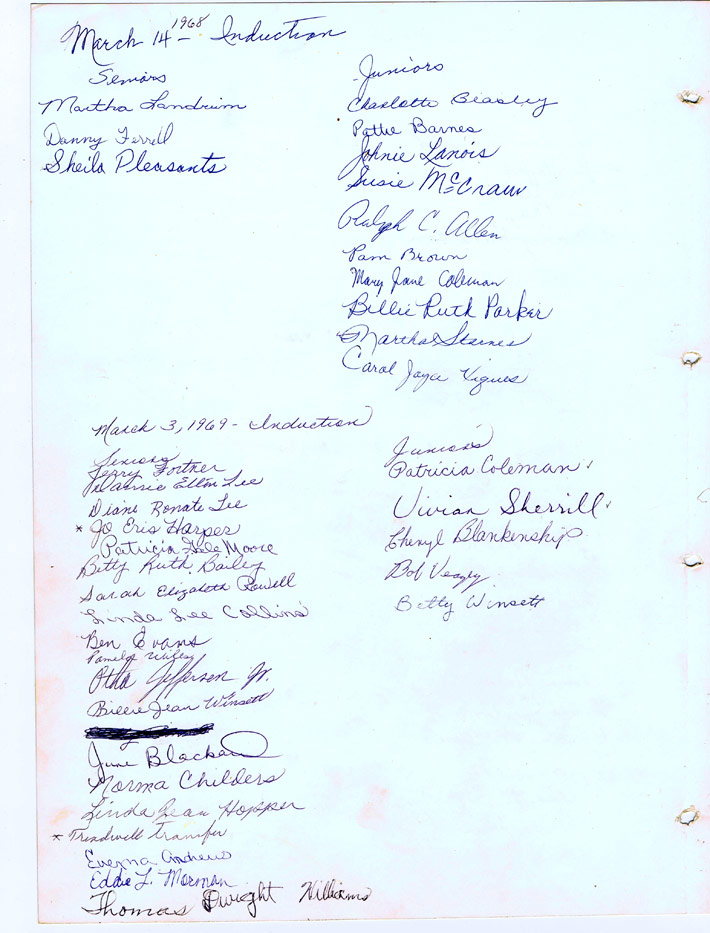 March 14 - 1968 Induction
Seniors
Martha Landrum
Danny Ferrell
Sheila Pleasants
Juniors
Charlotte Beasley
Pattie Barnes
Johnie Lanois
Susie McCraw
Ralph C. Allen
Pam Brown
Mary Jane Coleman
Billie Ruth Parker
Martha Starnes
Carol Joyce Vigues
March 3, 1969 - Induction
Seniors
Jerry Fortner
Ellen Lee
Diane Ronate Lee
* Jo Eris Harper
Patricia Gale Moore
Betty Ruth Bailey
Sarah Elizabeth Powell
Linda Lee Collins
Ben Evans
Pamela
Otha Jefferson Jr.
Billie Jean Winsett
June
Norma Childers
Linda Jean Hopper
* Treadwell transfer
Evezma Andrews
Eddie L. Morman
Thomas Dwight Williams
Juniors
Patricia Coleman
Vivian Sherrill
Cheryl Blankenship
Bob Veazey
Betty Winsett